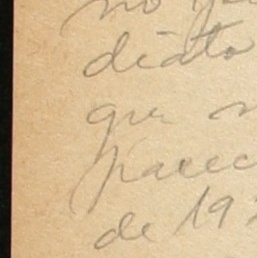 no
diato
que
parec
de 19